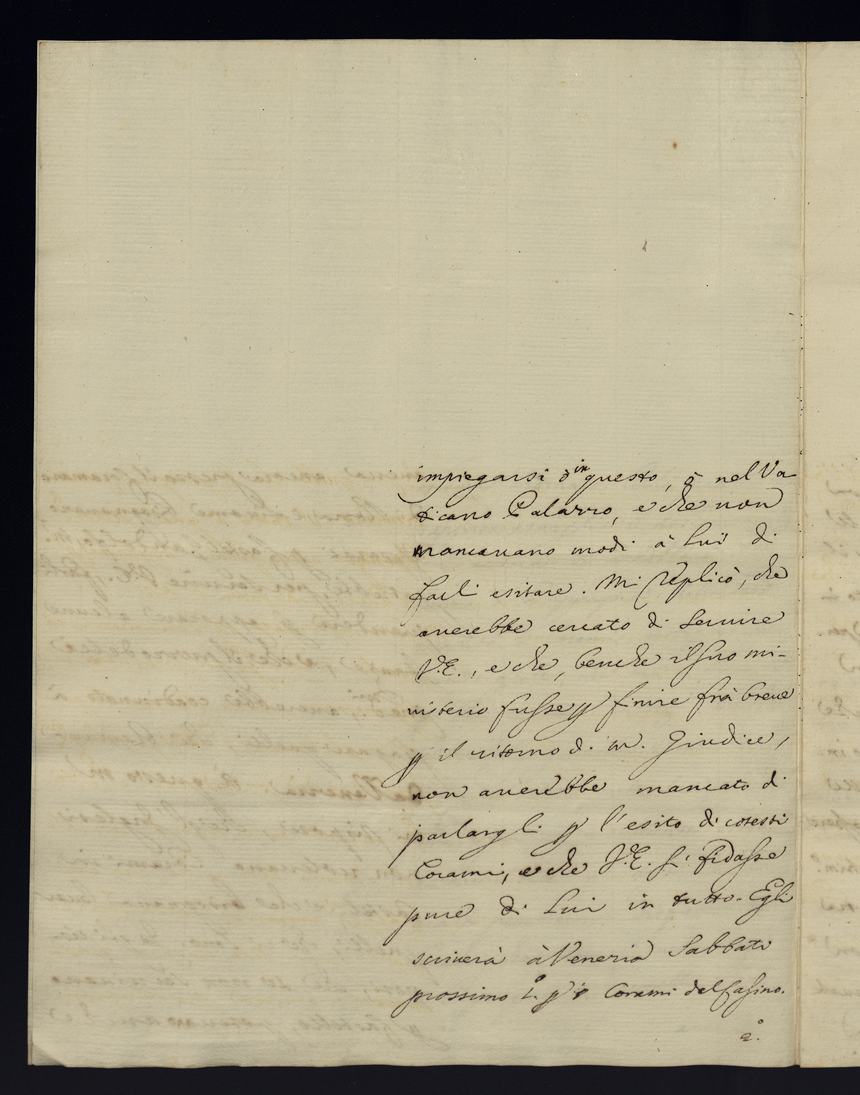 impiegarsi ò in questo, ò nel Va
ticano Palazzo, e che non
mancavano modi à Lui di
farli esitare. Mi replicò, che
averebbe cercato di servire
V.E., e che, benche il suo mi-
nisterio fusse p finire frà breve
p il ritorno di M. Giudice,
non averebbe mancato di
parlargli p l'esito di cotesti
Corami, e che V.E. si fidasse
pure di Lui in tutto. Egli
scriverà à Venezia Sabbato
prossimo p i Corami del Casino.